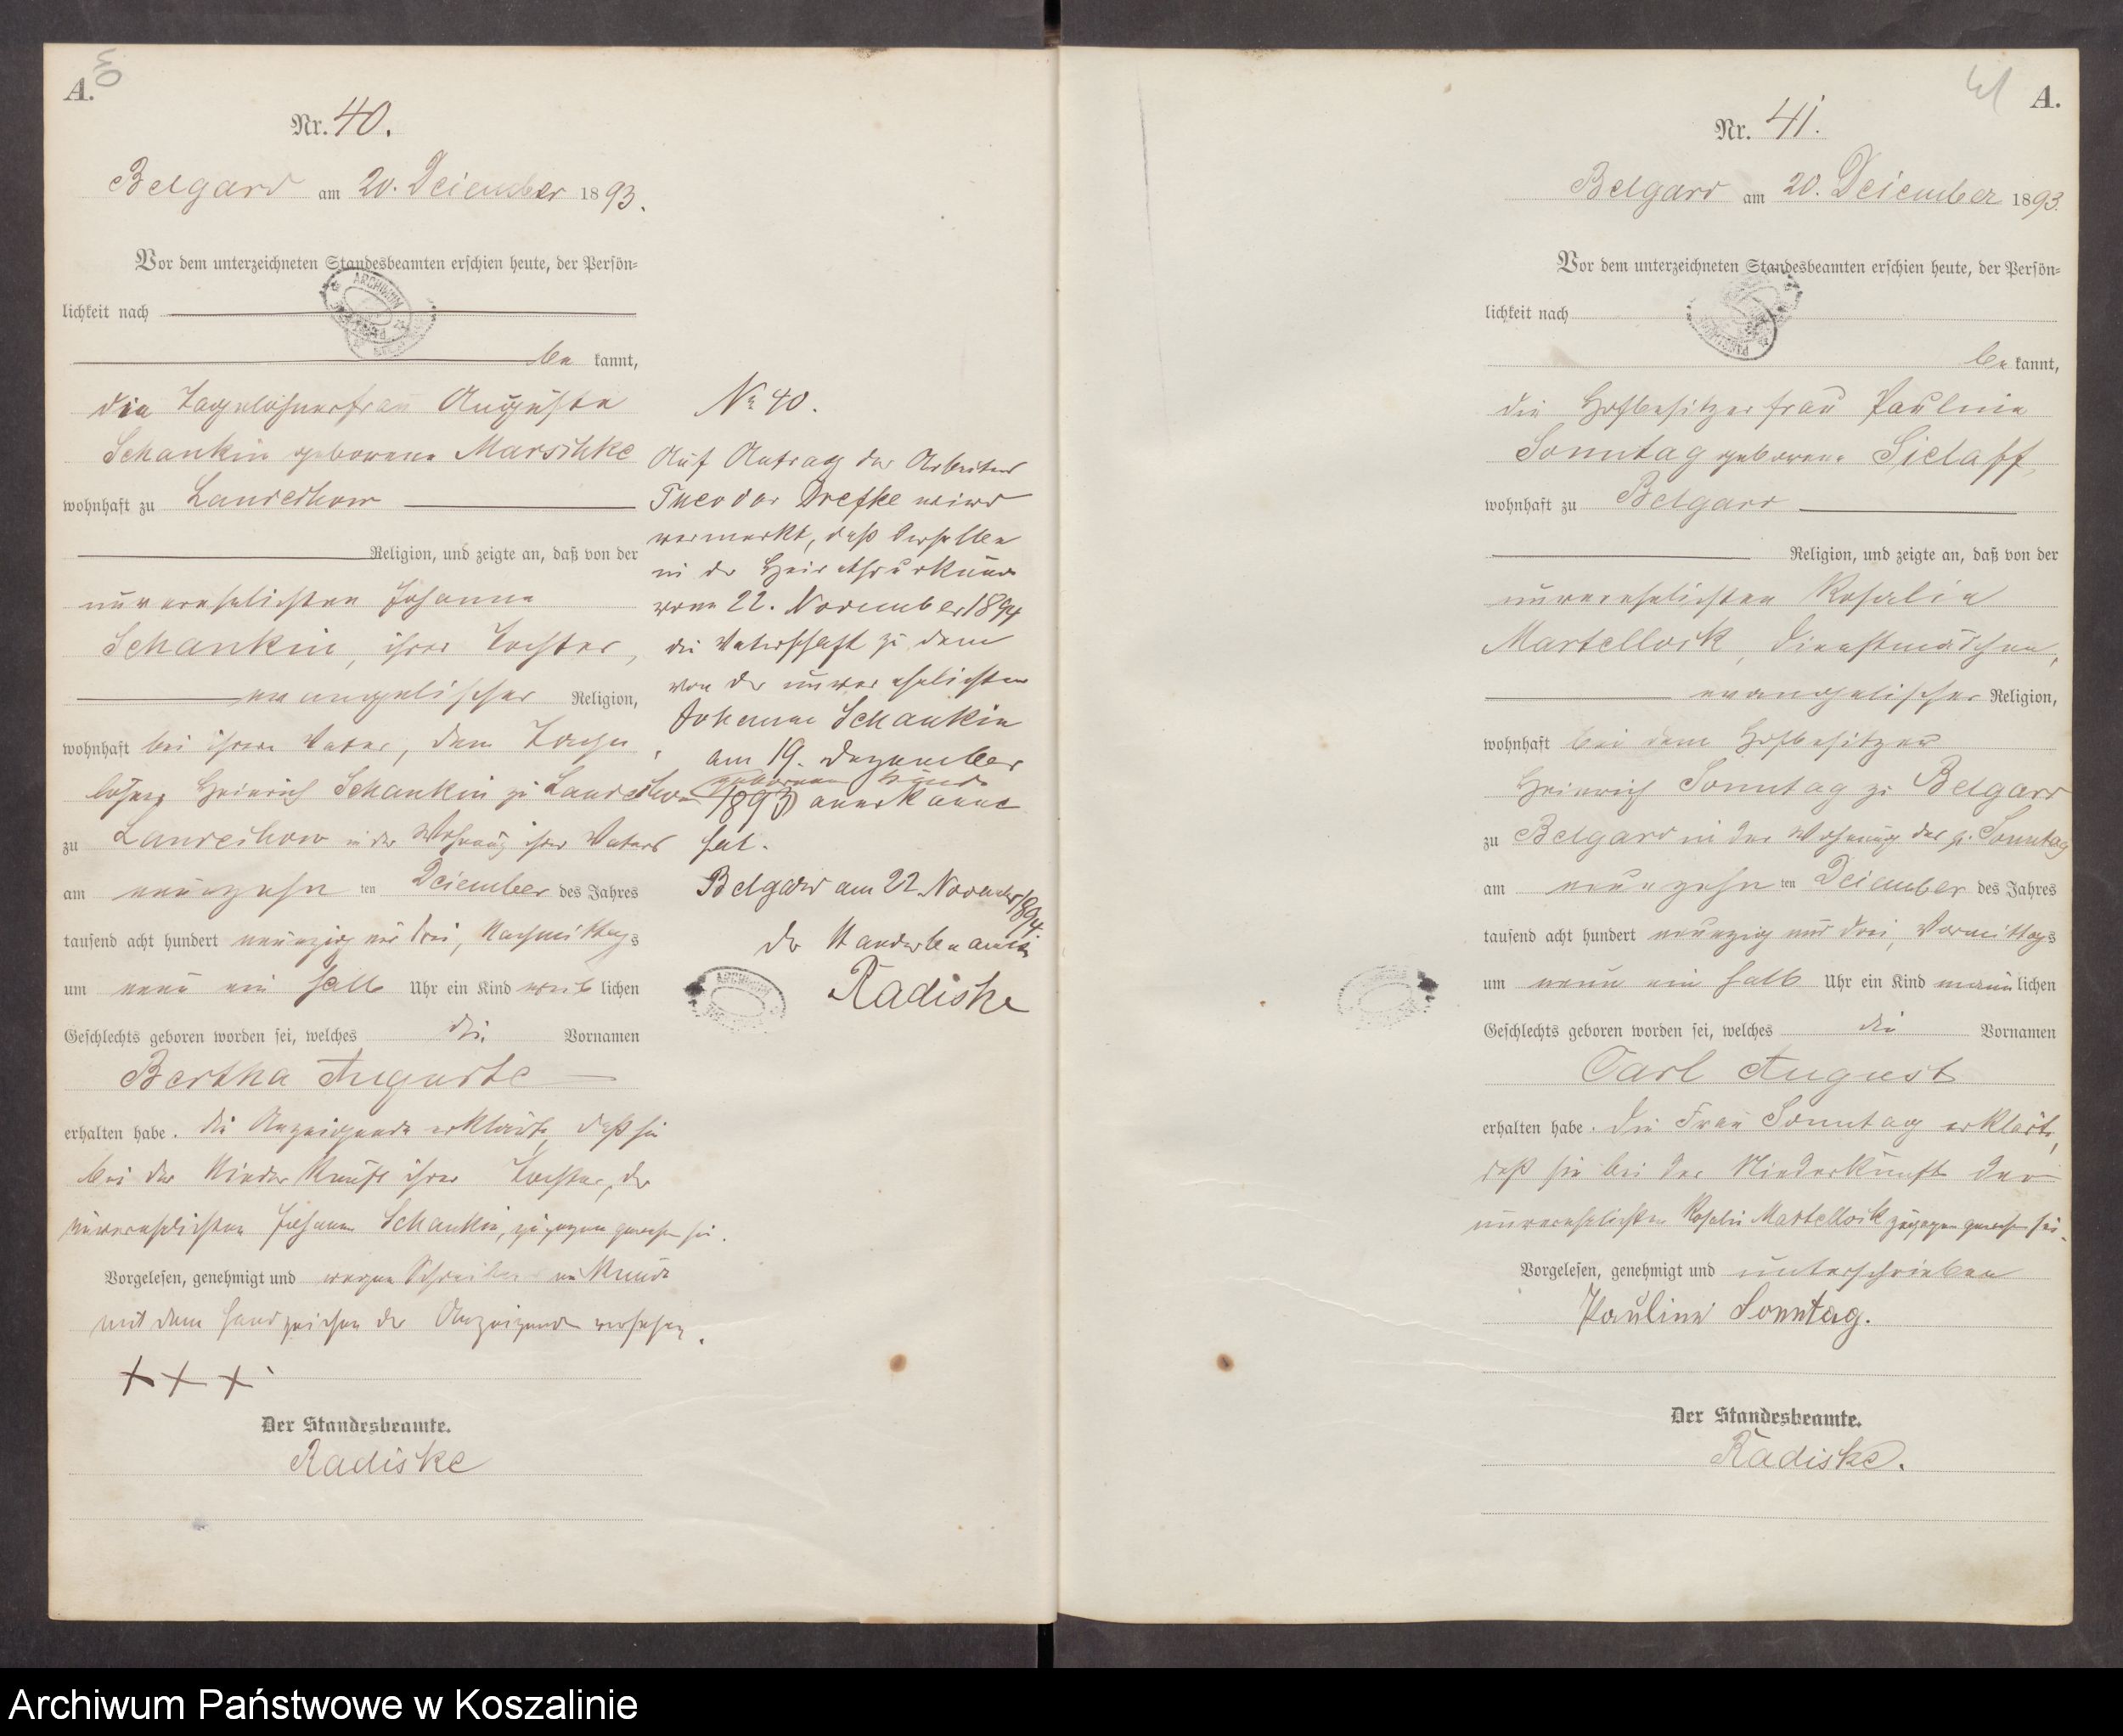 A.
40
Nr. 40.
Belgard am 20. December 1893.
Vor dem unterzeichneten Standesbeamten erschien heute, der Persön-
lichkeit nach
be kannt,
die Tagelöhnerfrau Auguste
Schankin geborene Marschke
wohnhaft zu Landechow
Religion, und zeigte an, daß von der
unverehelichten Johanne
Schankin, ihrer Tochter,
evangelischer Religion,
wohnhaft bei ihrem Vater, dem Tage
löhner Heinrich Schankin zu Landechow
zu Landechow in der Wohnung ihres Vaters
am neunzehn ten December des Jahres
tausend acht hundert neunzig und drei, Nachmittags
um neun ein halb Uhr ein Kind weib lichen
Geschlechts geboren worden sei, welches die Vornamen
Bertha Auguste
erhalten habe. Die Anzeigende erklärte, daß sie
bei der Niederkunft ihrer Tochter, der
unverehelichten Johanne Schankin, zugegen gewesen sei.
Vorgelesen, genehmigt und wegen Schreibens unkunde
mit dem Handzeichen der Anzeigenden versehen.
+ + +
Der Standesbeamte.
Radiske
No 40.
Auf Antrag des Arbeiters
Theodor Drefke wird
vermerkt, daß derselbe
in der Heirathsurkunde
vom 22. November 1894
die Vaterschaft zu dem
von der unverehelichten
Johanne Schankin
am 19. Dezember
geborenen Kinde
1893 anerkannt
hat.
Belgard am 22. November 1894
Der Standesbeamte
Radiske
ARCHIWUM
41
A.
Nr. 41.
Belgard am 20. December 1893.
Vor dem unterzeichneten Standesbeamten erschien heute, der Persön-
lichkeit nach
be kannt,
die Hofbesitzerfrau Pauline
Sonntag geborene Sielaff,
wohnhaft zu Belgard
Religion, und zeigte an, daß von der
unverehelichten Rosalie
Martellock, Dienstmädchen,
evangelischer Religion,
wohnhaft bei dem Hofbesitzer
Heinrich Sonntag zu Belgard
zu Belgard in der Wohnung des p. Sonntag
am neunzehn ten December des Jahres
tausend acht hundert neunzig und drei, Vormittags
um neun ein halb Uhr ein Kind männ lichen
Geschlechts geboren worden sei, welches die Vornamen
Carl August
erhalten habe. Die Frau Sonntag erklärte,
daß sie bei der Niederkunft der
unverehelichten Rosalie Martellock zugegen gewesen sei.
Vorgelesen, genehmigt und unterschrieben
Pauline Sonntag.
Der Standesbeamte.
Radiske.
Archiwum Państwowe w Koszalinie